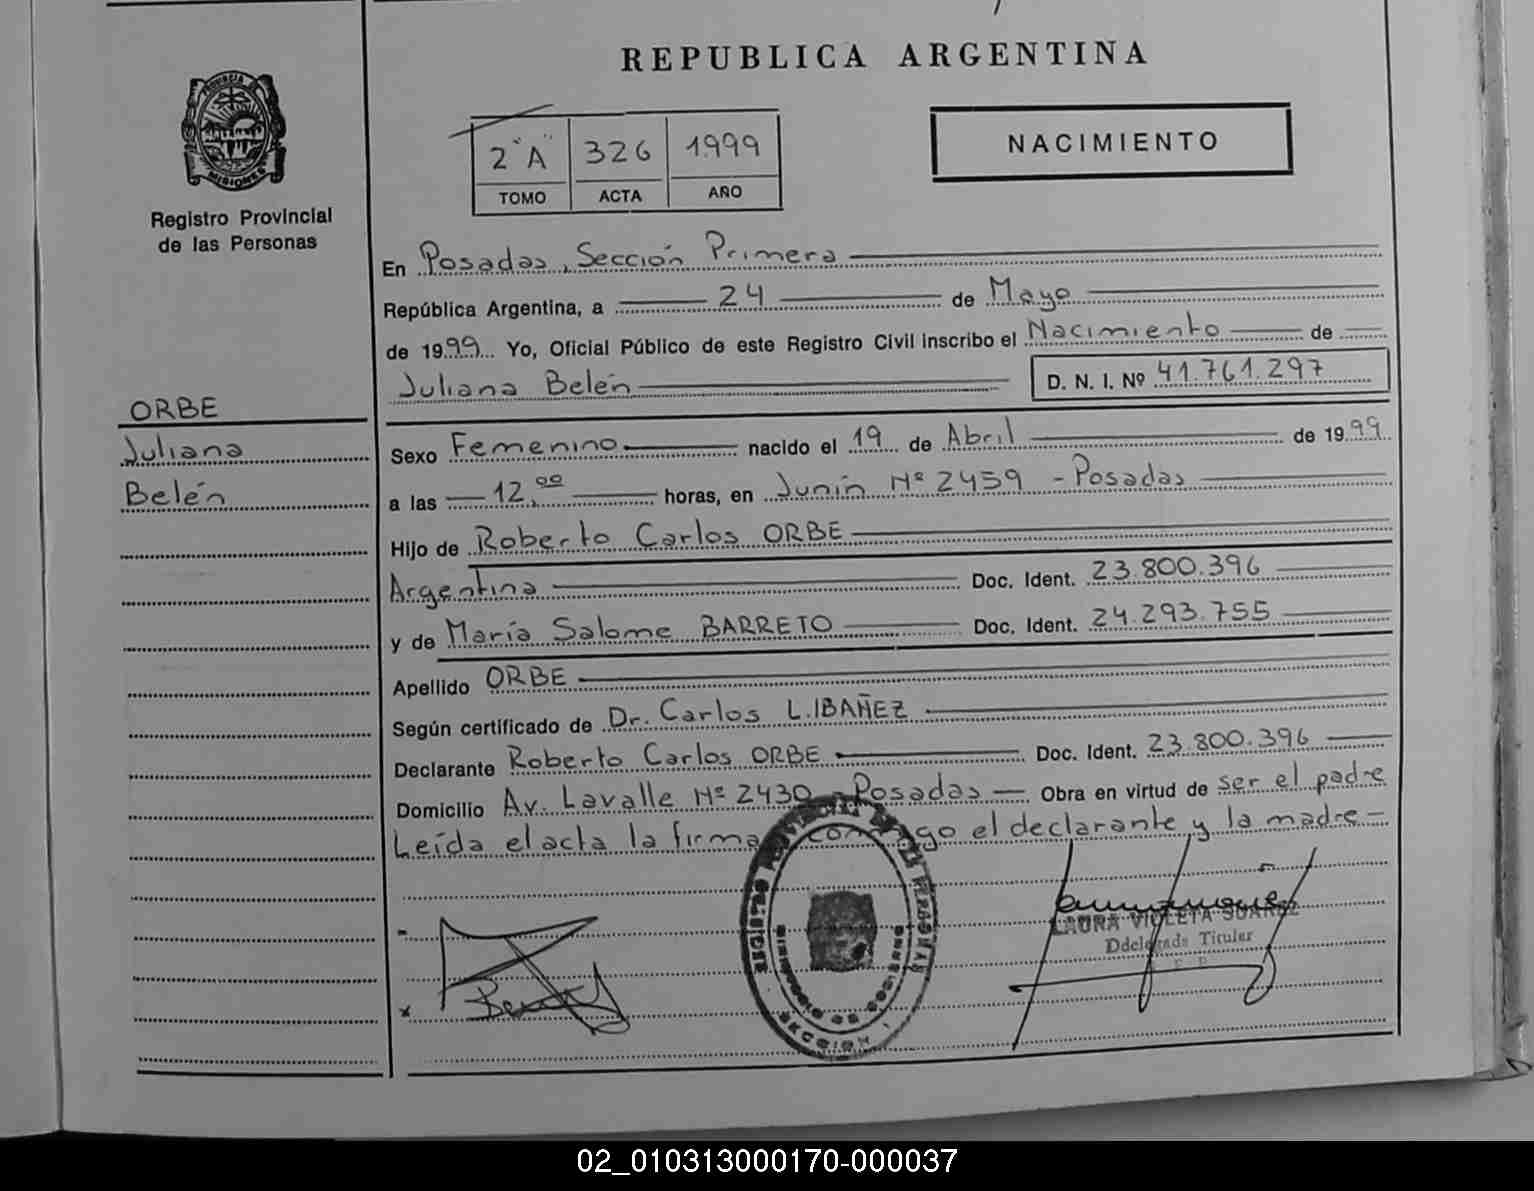 REPUBLICA ARGENTINA
PROVINCIA
MISIONES
Registro Provincial
de las Personas
2 "A" 326 1.999
TOMO ACTA AÑO
NACIMIENTO
En Posadas, Sección Primera
República Argentina, a 24 de Mayo
de 1999 Yo, Oficial Público de este Registro Civil inscribo el Nacimiento de
Juliana Belén D. N. I. Nº 41.761.297
ORBE
Juliana
Belén
Sexo Femenino nacido el 19 de Abril de 1999
a las 12,00 horas, en Junín Nº 2459 - Posadas
Hijo de Roberto Carlos ORBE
Argentina Doc. Ident. 23.800.396
y de María Salome BARRETO Doc. Ident. 24.293.755
Apellido ORBE
Según certificado de Dr. Carlos L. IBAÑEZ
Declarante Roberto Carlos ORBE Doc. Ident. 23.800.396
Domicilio Av. Lavalle Nº 2430 - Posadas Obra en virtud de ser el padre
Leída el acta la firma conmigo el declarante y la madre
LAURA VIOLETA SUAREZ
Ddelegada Titular
MINISTERIO DE GOBIERNO
02_010313000170-000037